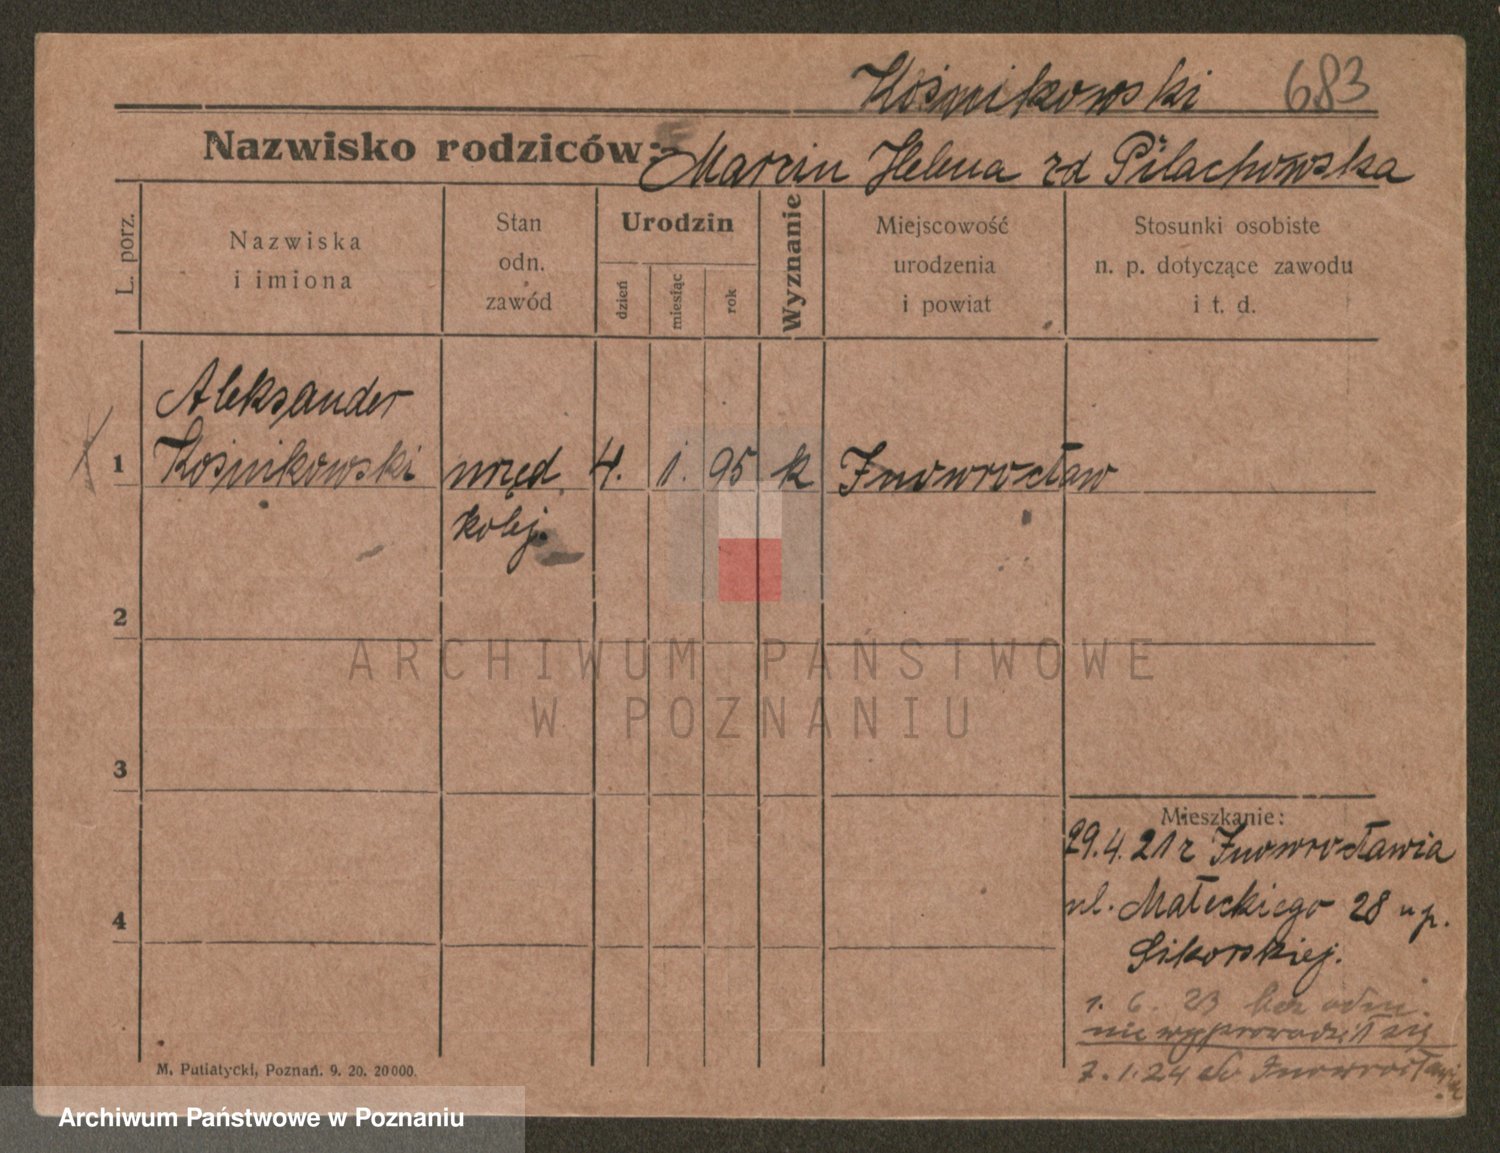 Kośnikowski 683
Nazwisko rodziców: Marcin Helena zd Pilachowska
L. porz.
Nazwiska
i imiona
Stan
odn.
zawód
Urodzin
dzień
miesiąc
rok
Wyznanie
Miejscowość
urodzenia
i powiat
Stosunki osobiste
n. p. dotyczące zawodu
i t. d.
Aleksander
1 Kośnikowski urzęd. 4. 1. 95 k Inowrocław
kolej.
2
ARCHIWUM PAŃSTWOWE
W POZNANIU
3
Mieszkanie:
29.4.21 z Inowrocławia
4
ul. Małeckiego 28 u p.
Sikorskiej.
1. 6. 23 bez odm.
nie wyprowadził się
7.1.24 do Inowrocławia
M. Putiatycki, Poznań. 9. 20. 20000.
Archiwum Państwowe w Poznaniu